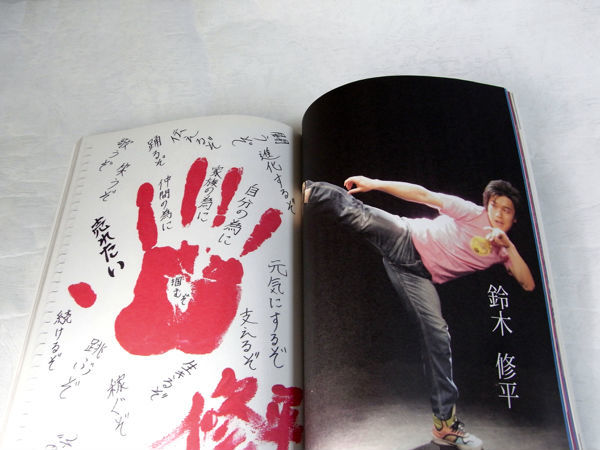 進化するぞ
踊るぞ
歌うぞ
笑うぞ
自分の為に
家族の為に
仲間の為に
売れたい
掴むぞ
元気にするぞ
支えるぞ
生るぞ
稼ぐぞ
跳ぶぞ
続けるぞ
修平
鈴木 修平